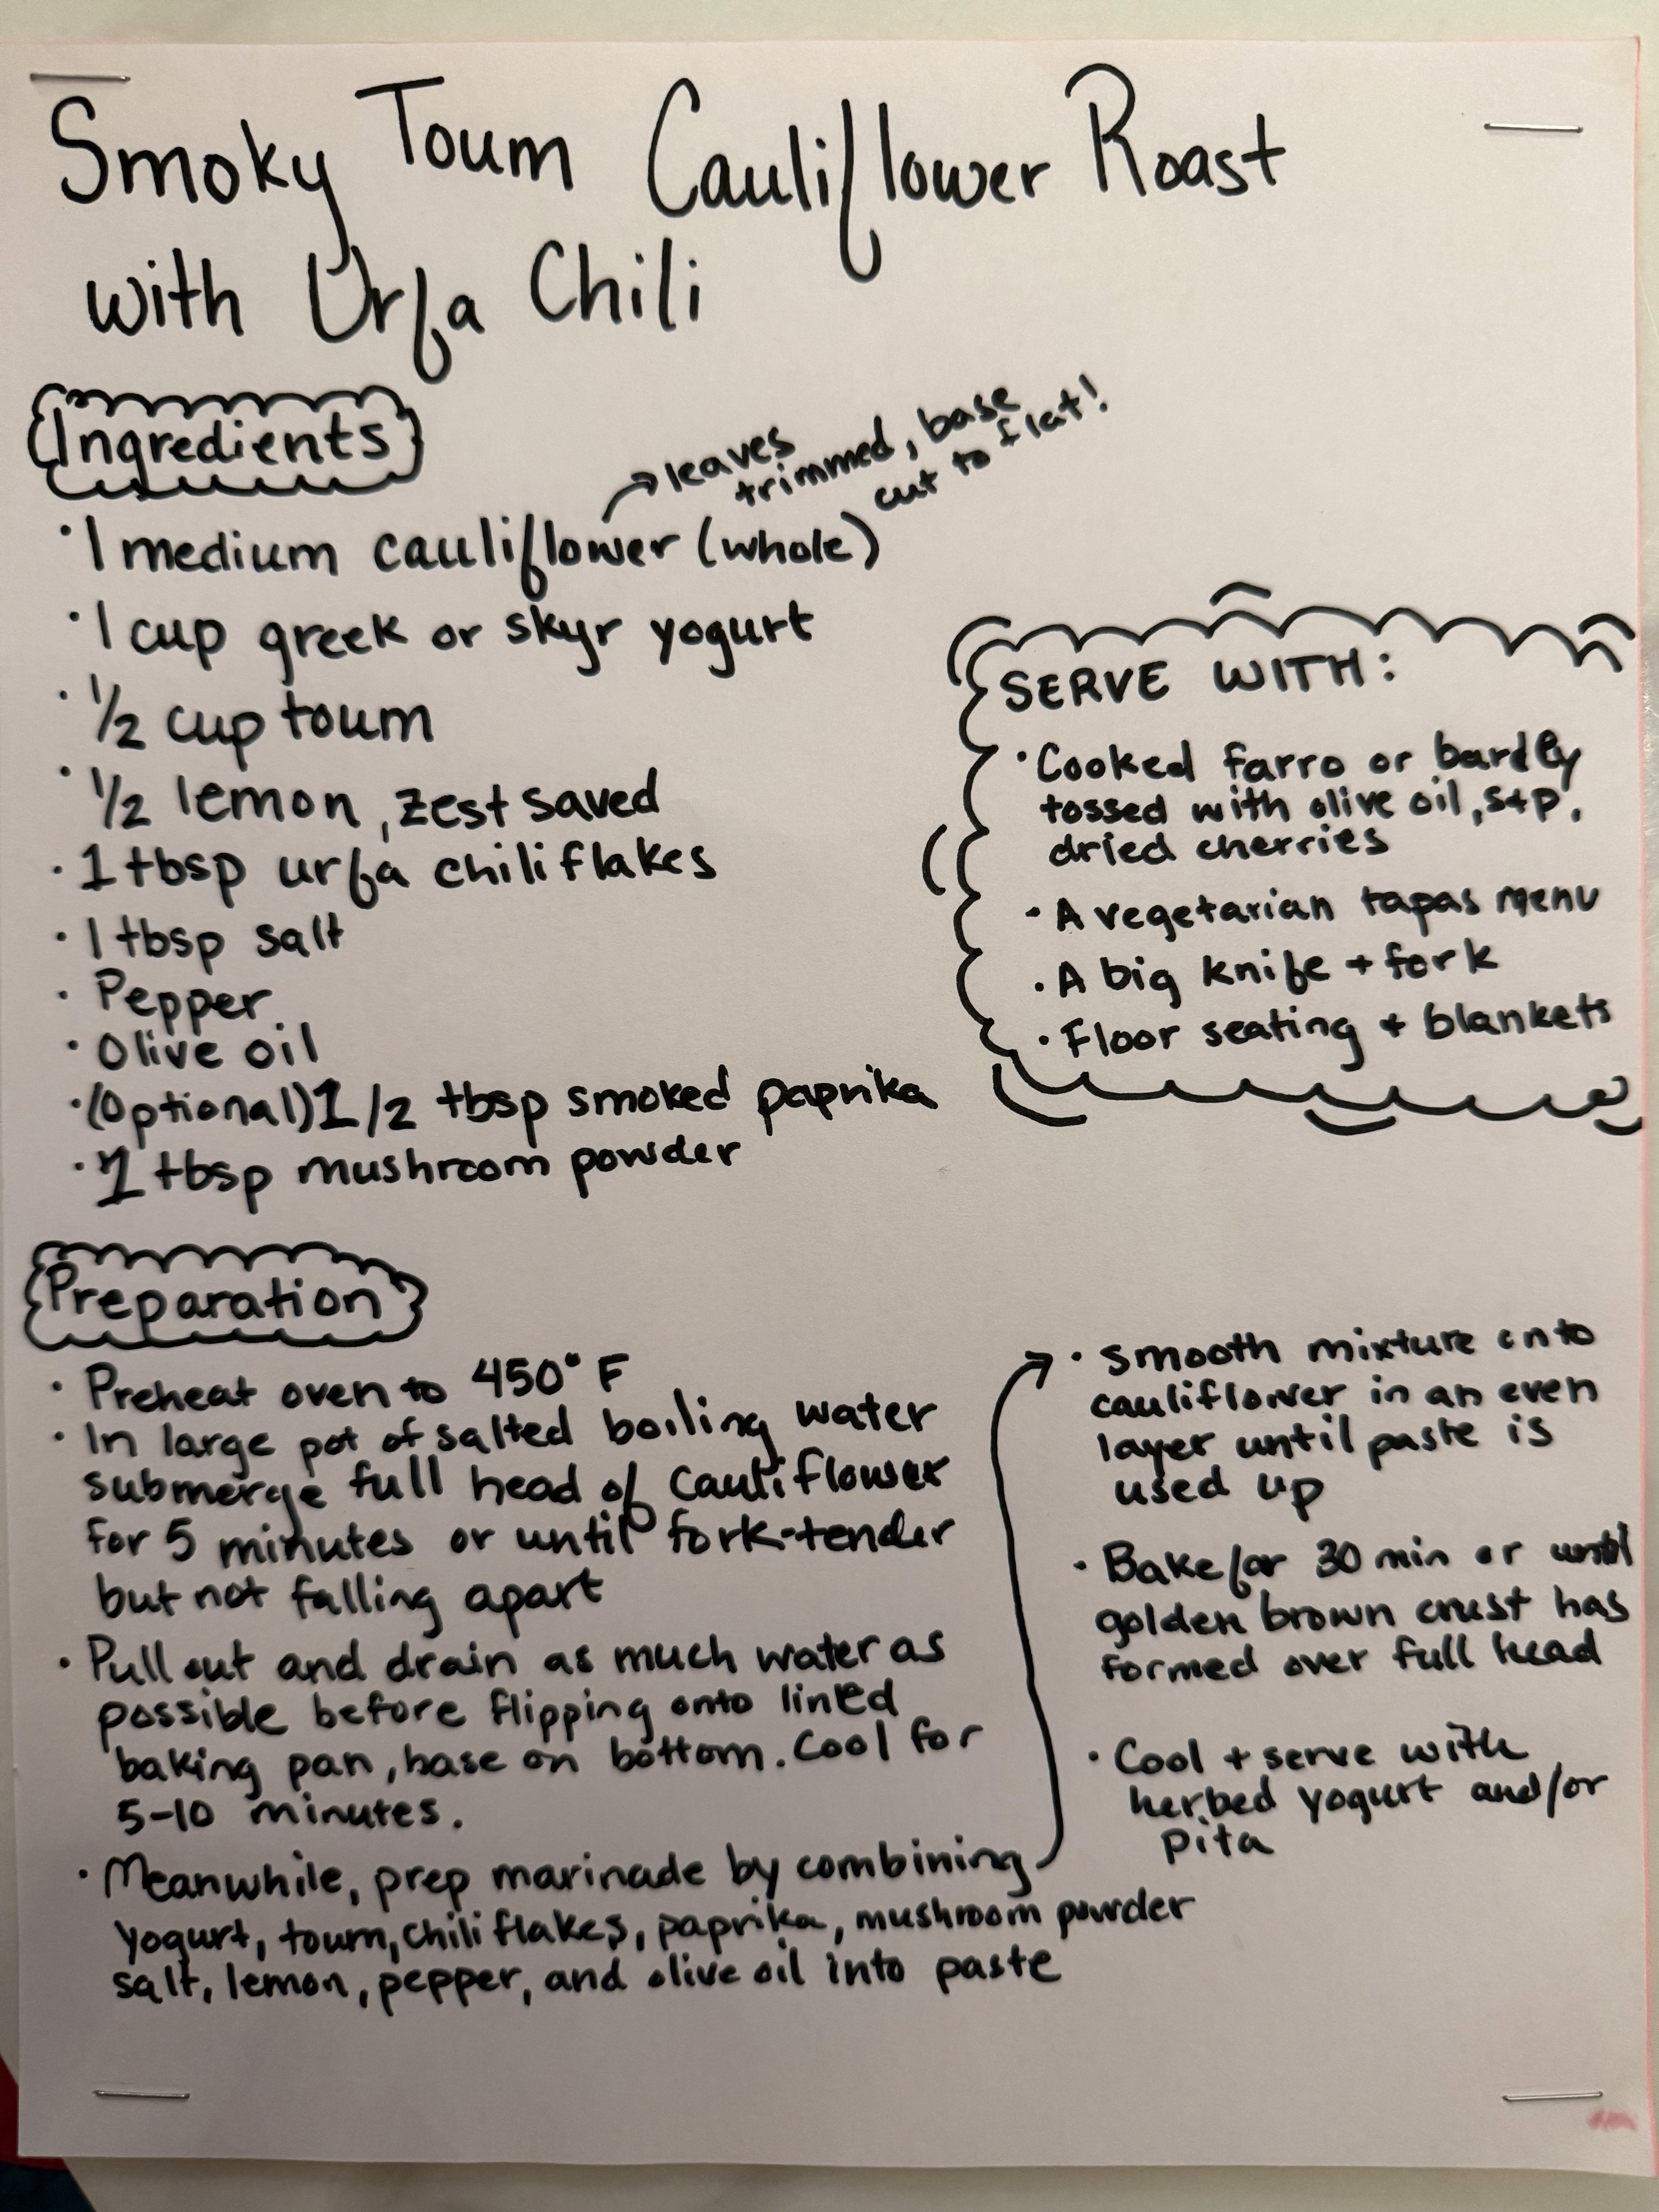 Smoky Toum Cauliflower Roast
with Urfa Chili
Ingredients
leaves
trimmed, base
cut to flat!
· 1 medium cauliflower (whole)
· 1 cup greek or skyr yogurt
· 1/2 cup toum
· 1/2 lemon, zest saved
· 1 tbsp urfa chili flakes
· 1 tbsp salt
· Pepper
· Olive oil
· (Optional) 1/2 tbsp smoked paprika
· 1 tbsp mushroom powder
SERVE WITH:
· Cooked farro or bardly
tossed with olive oil, s+p,
dried cherries
· A vegetarian tapas menu
· A big knife + fork
· Floor seating + blankets
Preparation
· Preheat oven to 450° F
· In large pot of salted boiling water
submerge full head of cauliflower
for 5 minutes or until fork-tender
but not falling apart
· Pull out and drain as much water as
possible before flipping onto lined
baking pan, base on bottom. Cool for
5-10 minutes.
· Meanwhile, prep marinade by combining
yogurt, toum, chili flakes, paprika, mushroom powder
salt, lemon, pepper, and olive oil into paste
· smooth mixture onto
cauliflower in an even
layer until paste is
used up
· Bake for 30 min or until
golden brown crust has
formed over full head
· Cool + serve with
herbed yogurt and/or
pita